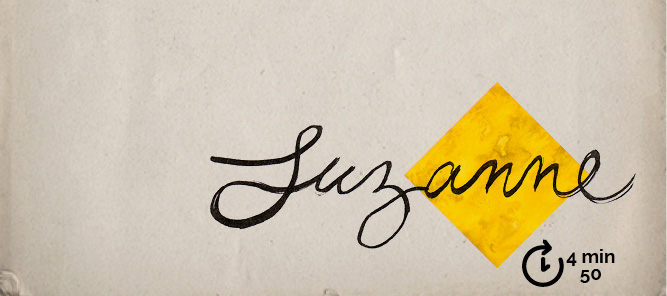 Suzanne
4 min
50